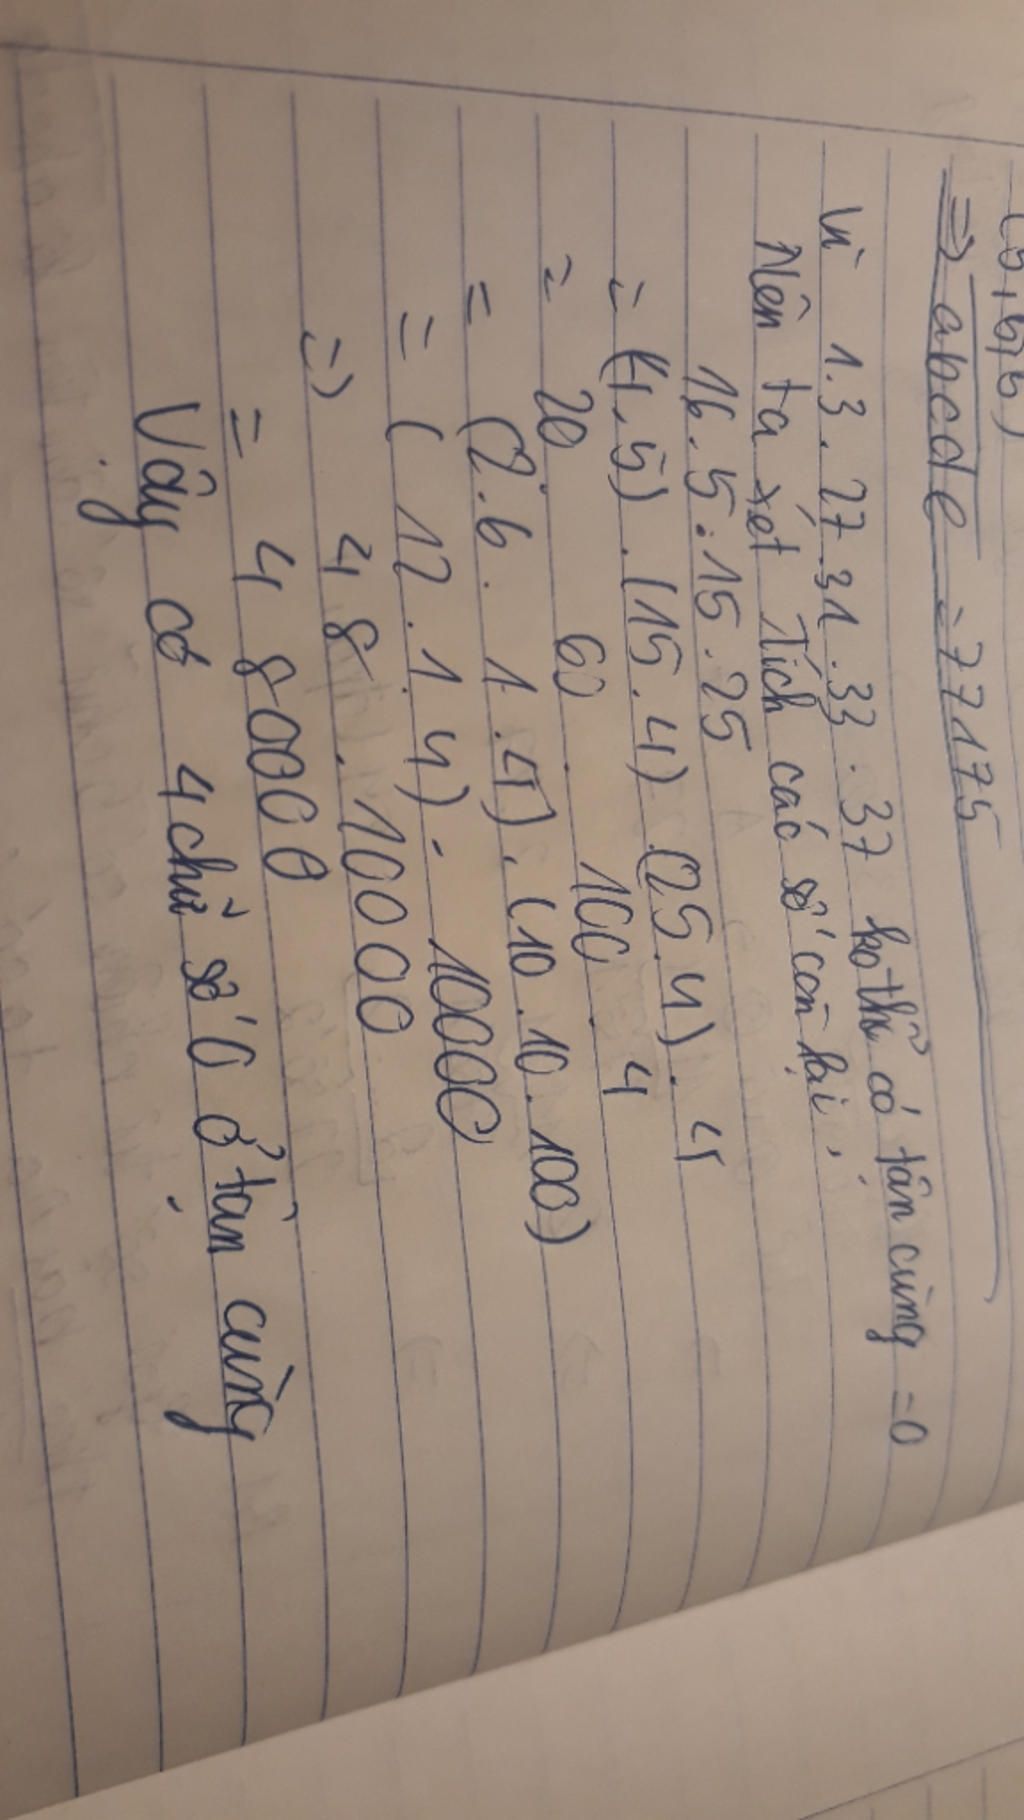 => abcde = 77175
Vì 1.3.27.31.33.37 ko thể có tận cùng = 0
Nên ta xét Tích các số còn lại,
16.5.15.25
= (4.5).(15.4).(25.4).4
= 20 60 . 100 . 4
= (2.6.1.4).(10.10.100)
= (12.1.4). 10000
=> 48.10000
= 480000
Vậy có 4 chữ số 0 ở tận cùng